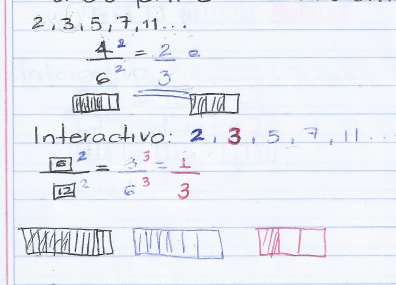 2, 3, 5, 7, 11...
4² = 2 =
6² 3
Interactivo: 2, 3, 5, 7, 11...
6² = 3³ = 1
12² 6³ 3